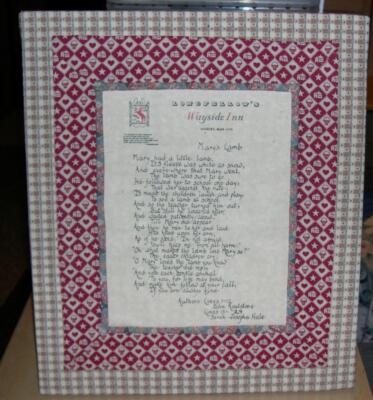 LONGFELLOW'S
Wayside Inn
Mary's Lamb
Mary had a little lamb,
Its fleece was white as snow,
And everywhere that Mary went,
The lamb was sure to go
He followed her to school one day;
That was against the rule;
It made the children laugh and play,
To see a lamb at school.
And so the teacher turned him out;
But still he lingered near,
And waited patiently about,
Till Mary did appear
And then he ran to her and laid
His head upon her arm,
As if he said, I'm not afraid
You'll keep me from all harm.
What makes the lamb love Mary so?
The eager children cry
O Mary loves the lamb you know
The teacher did reply
And you each gentle animal
To you, for life may bind,
And make it follow at your call,
If you are always kind.
Authors Lines
John Roulstone
Lines 13- 24
Sarah Josepha Hale